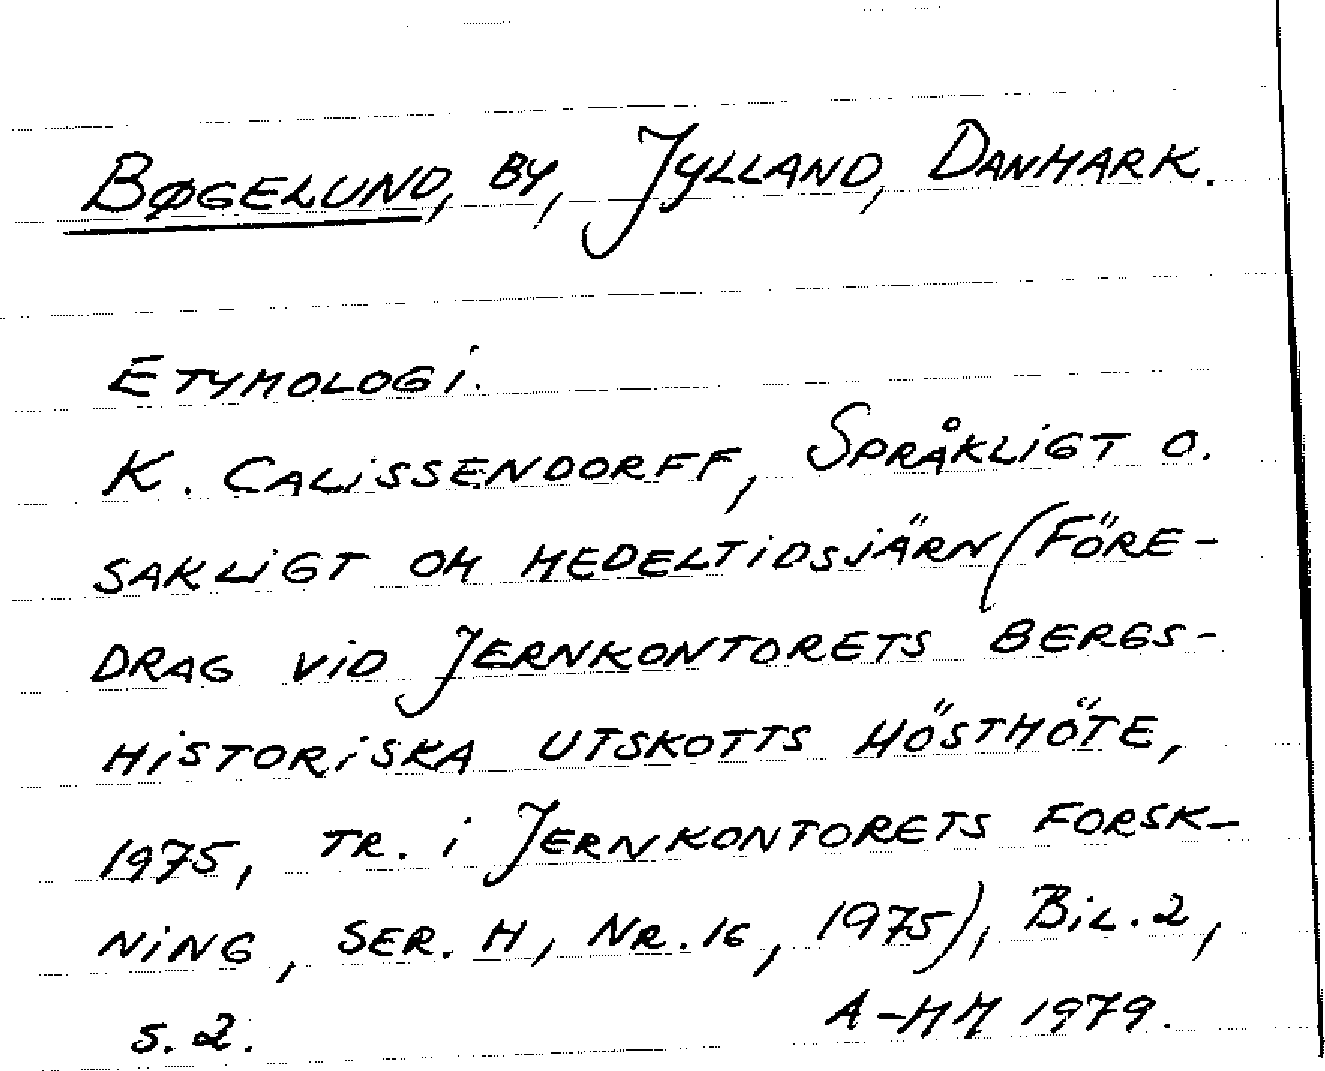 BØGELUND, BY, JYLLAND, DANMARK.
ETYMOLOGI.
K. CALISSENDORFF, SPRÅKLIGT O.
SAKLIGT OM MEDELTIDSJÄRN (FÖRE-
DRAG VID JERNKONTORETS BERGS-
HISTORISKA UTSKOTTS HÖSTMÖTE,
1975, TR. i JERNKONTORETS FORSK-
NING, SER. H, NR. 16, 1975), BIL. 2,
S. 2.
A-MM 1979.